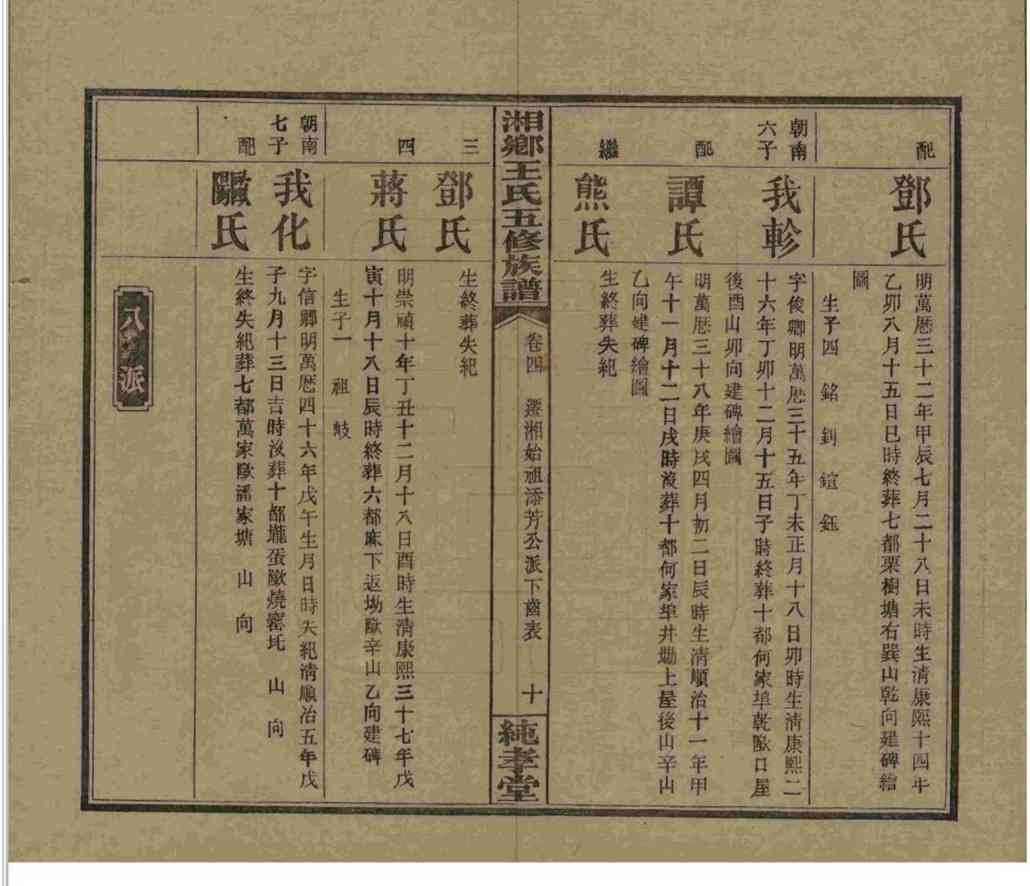 配
鄧氏
明萬曆三十二年甲辰七月二十八日未時生清康熙十四年
乙卯八月十五日巳時終葬七都栗樹塘右巽山乾向建碑繪
圖
生子四 銘 釗 鍹 鈺
朝南
六子
我軫
字俊卿明萬曆三十五年丁未正月十八日卯時生清康熙二
十六年丁卯十二月十五日子時終葬十都何家埠乾歐口屋
後酉山卯向建碑繪圖
配
譚氏
明萬曆三十八年庚戌四月初二日辰時生清順治十一年甲
午十一月十二日戌時沒葬十都何家埠井坳上屋後山辛山
乙向建碑繪圖
繼
熊氏
生終葬失紀
湘鄉王氏五修族譜
卷四
遷湘始祖添芳公派下齒表
十
純孝堂
三
鄧氏
生終葬失紀
四
蔣氏
明崇禎十年丁丑十二月十八日酉時生清康熙三十七年戊
寅十月十八日辰時終葬六都麻下返坳歐辛山乙向建碑
生子一 祖 敍
朝南
七子
我化
字信卿明萬曆四十六年戊午生月日時失紀清順治五年戊
子九月十三日吉時沒葬十都壠蛋歐燒窰圫 山 向
配
歐陽氏
生終失紀葬七都萬家歐潘家塘 山 向
八 派